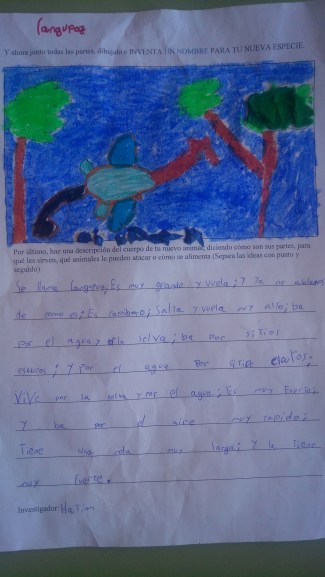 Canguroz
Y ahora junto todas las partes, dibújalo e INVENTA UN NOMBRE PARA TU NUEVA ESPECIE.
Por último, haz una descripción del cuerpo de tu nuevo animal, diciendo cómo son sus partes, para
qué les sirven, qué animales le pueden atacar o cómo se alimenta (Separa las ideas con punto y
seguido)
Se llama Es muy grande y vuela; Y ya no
de como es; Es Salta y vuela muy alto; ba
por el agua y la selva; ba por sitios
y por el agua por sitios
Vive por la selva y por el agua; Es muy Fuerte;
Y ba por el aire muy rapido;
Tiene una muy larga; Y la Tiene
muy fuerte.
Investigador: Hatim